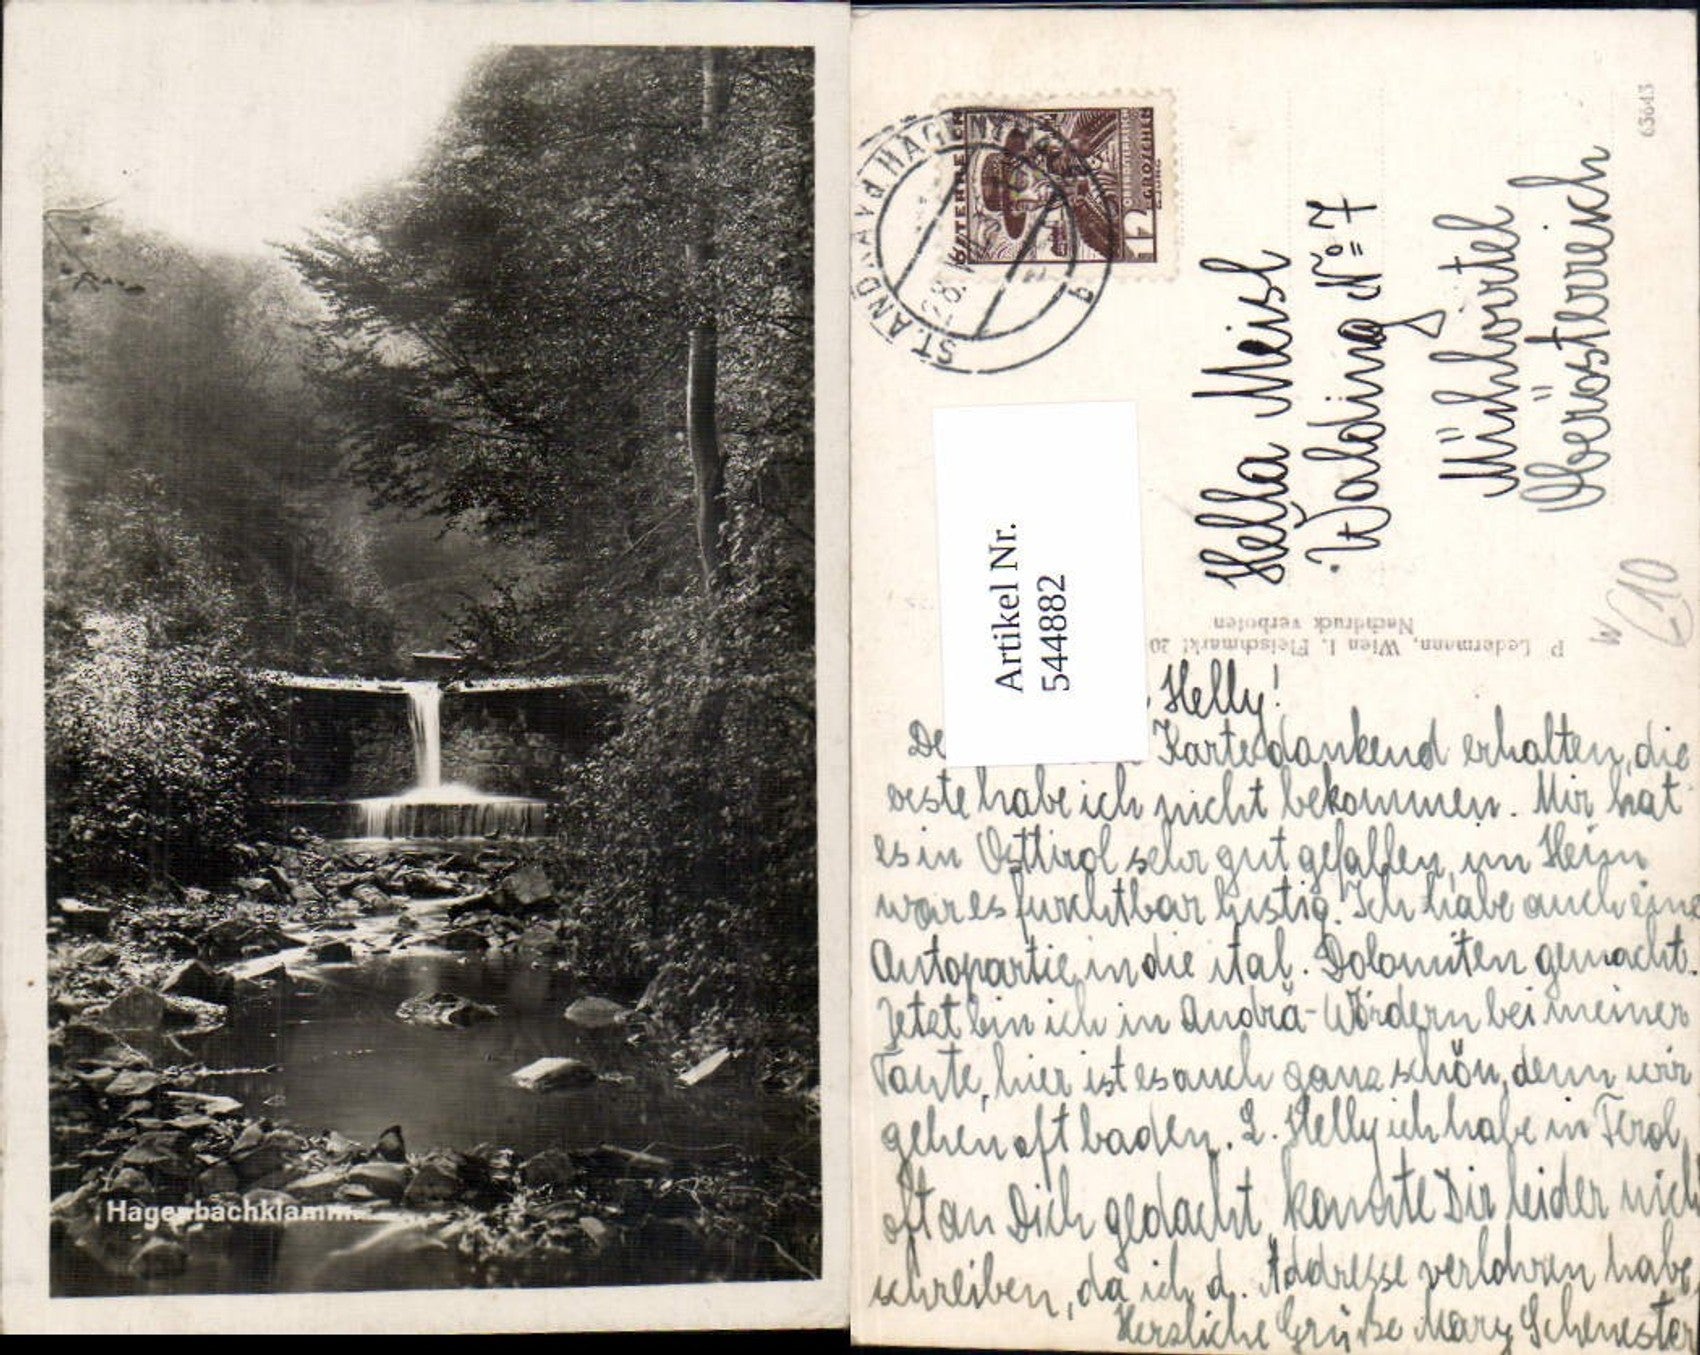 Hagenbachklamm.
ST. ANDRÄ v. d. HAGENTALE
b
ÖSTERREICH
12
GROSCHEN
63643
Hella Meisl
Walding No 7
Mühlviertel
Oberösterreich
P. Ledermann, Wien I, Fleischmarkt 20
Nachdruck verboten
W
€10
Artikel Nr.
544882
Helly!
De Karte dankend erhalten, die
erste habe ich nicht bekommen. Mir hat
es in Osttirol sehr gut gefallen, im Heim
war es furchtbar lustig. Ich habe auch eine
Autopartie in die ital. Dolomiten gemacht.
Jetzt bin ich in Andrä-Wördern bei meiner
Tante, hier ist es auch ganz schön, denn wir
gehen oft baden. L. Helly ich habe in Tirol
oft an Dich gedacht, konnte Dir leider nicht
schreiben, da ich d. Addresse verlohren habe,
Herzliche Grüße Mary